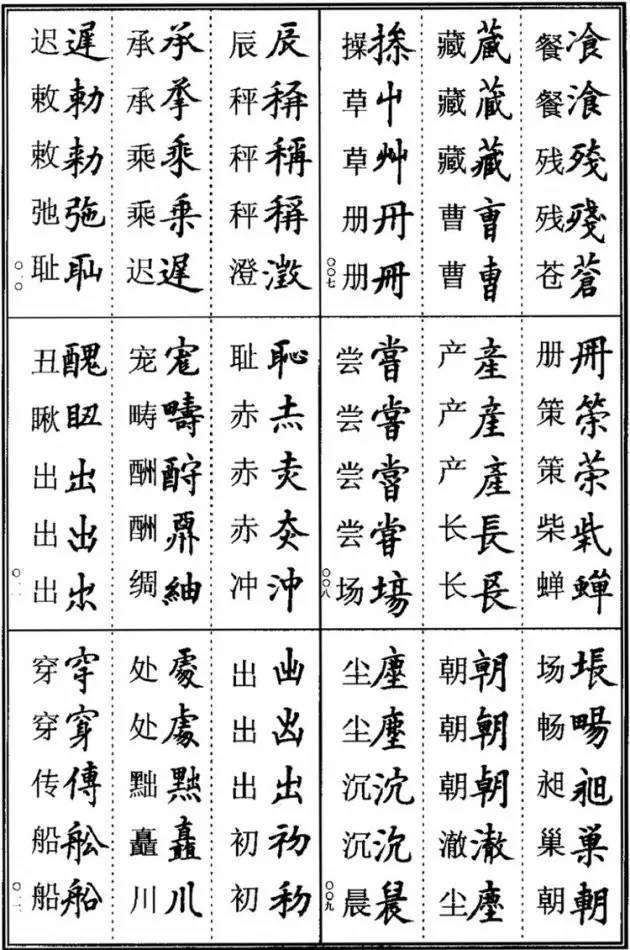 餐飡 餐湌 残残 残殘 苍蒼
藏蔵 藏蔵 藏藏 曹曺 曹曹
操 草屮 草艸 册冊 册冊
〇〇七
册冊 策筞 策茦 柴 蝉蟬
产產 产産 产產 长長 长镸
尝嘗 尝嘗 尝嘗 尝甞 场場
〇〇八
场 畅暢 昶昶 巢巢 朝朝
朝朝 朝朝 朝朝 澈澈 尘塵
尘塵 尘塵 沉沉 沉沉 晨晨
〇〇九
辰辰 秤 秤稱 秤稱 澄澂
承承 承 乘乘 乘乗 迟遲
迟遲 敕勅 敕勑 弛弛 耻耻
〇一〇
耻恥 赤赤 赤 赤 冲沖
宠 畴疇 酬酧 酬 绸紬
丑醜 瞅 出出 出出 出
〇一一
出 出 出出 初初 初
处處 处處 黜黜 矗矗 川川
穿穿 穿穿 传傳 船舩 船船
〇一二